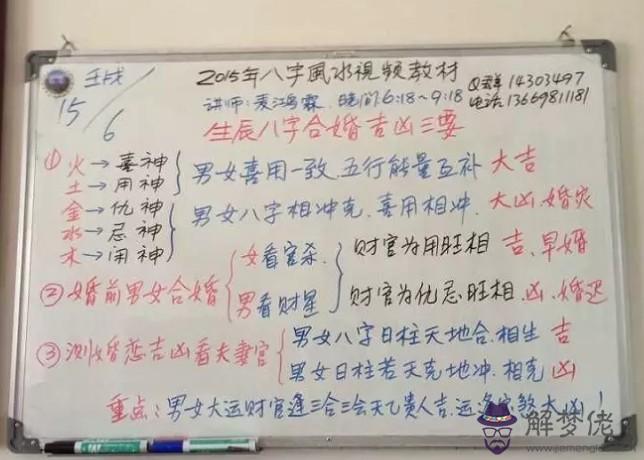 壬戌
15/6
2015年八字風水視频教材
讲师:麦鸿霖. 晚间6:18~9:18
Q群14303497
电话:13669811181
生辰八字合婚吉凶三要
① 火→喜神
土→用神
男女喜用一致.五行能量互补 大吉
金→仇神
水→忌神
木→闲神
男女八字相冲克.喜用相冲. 大凶.婚灾
② 婚前男女合婚
女看官杀. 财官为用旺相 吉.早婚
男看财星 财官为仇忌旺相.凶.婚迟
③ 测婚恋吉凶看夫妻宫
男女八字日柱天地合.相生 吉
男女日柱若天克地冲.相克 凶
重点:男女大运财官逢三合三会天乙贵人吉.运逢 煞大凶!
解梦佬